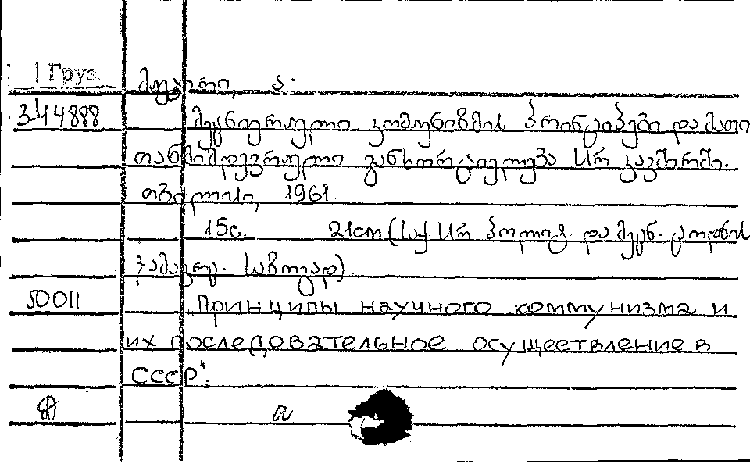 1 Груз.
314888
მეცნიერული კომუნიზმის პრინციპები და მათი
თანმიმდევრული განხორციელება სსრ კავშირში.
თბილისი, 1961.
15с. 21см (საქ. სსრ პოლიტ. და მეცნ. ცოდნის
გამავრც. საზოგად)
50011 Принципы научного коммунизма и
их последовательное осуществление в
СССР.